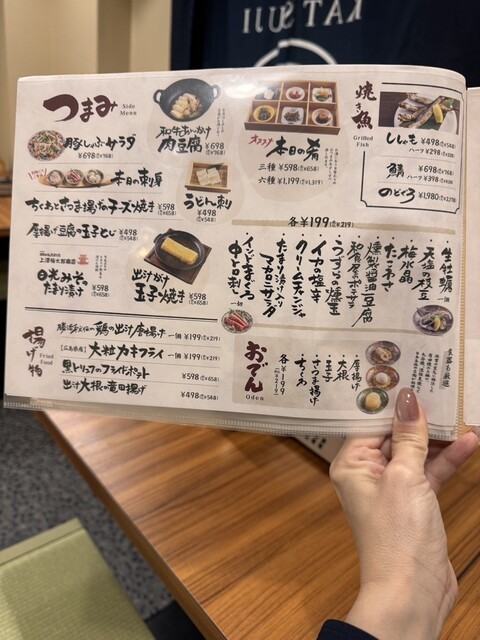 KATSUJI
つまみ
Side Menu
豚しゃぶサラダ
¥698(込¥768)
本日の刺身
ちくわとさつま揚げのチーズ焼き ¥598(込¥658)
厚揚げ豆腐の玉子とじ ¥498(込¥548)
日光みそたまり漬け
¥598(込¥658)
和牛あんかけ
肉豆腐 ¥698(込¥768)
うどんの刺
¥498(込¥548)
出汁がけ
玉子焼き ¥598(込¥658)
オススメ
本日の肴
三種 ¥598(込¥658)
六種 ¥1,199(込¥1,319)
焼き魚
Grilled Fish
ししゃも ¥498(込¥548)
ハーフ ¥298(込¥328)
鯖 ¥698(込¥768)
ハーフ ¥398(込¥438)
のどぐろ ¥1,980(込¥2,178)
各¥199(込¥219)
生牡蠣 一個
天塩の枝豆
梅水晶
たこわさ
燻製醤油豆腐
和風生ポテサラ
うずらの燻玉
イカの塩辛
クリームチャンジャ
たまり漬け入りマカロニサラダ
インドまぐろ中トロ刺し 一切
揚げ物
Fried Food
鶏の出汁唐揚げ 一個 ¥199(込¥219)
【広島県産】大粒カキフライ 一個 ¥199(込¥219)
黒トリュフのフライドポテト ¥598(込¥658)
出汁大根の竜田揚げ ¥498(込¥548)
おでん
Oden
厚揚げ
大根
玉子
さつま揚げ
ちくわ
各¥199(込¥219)